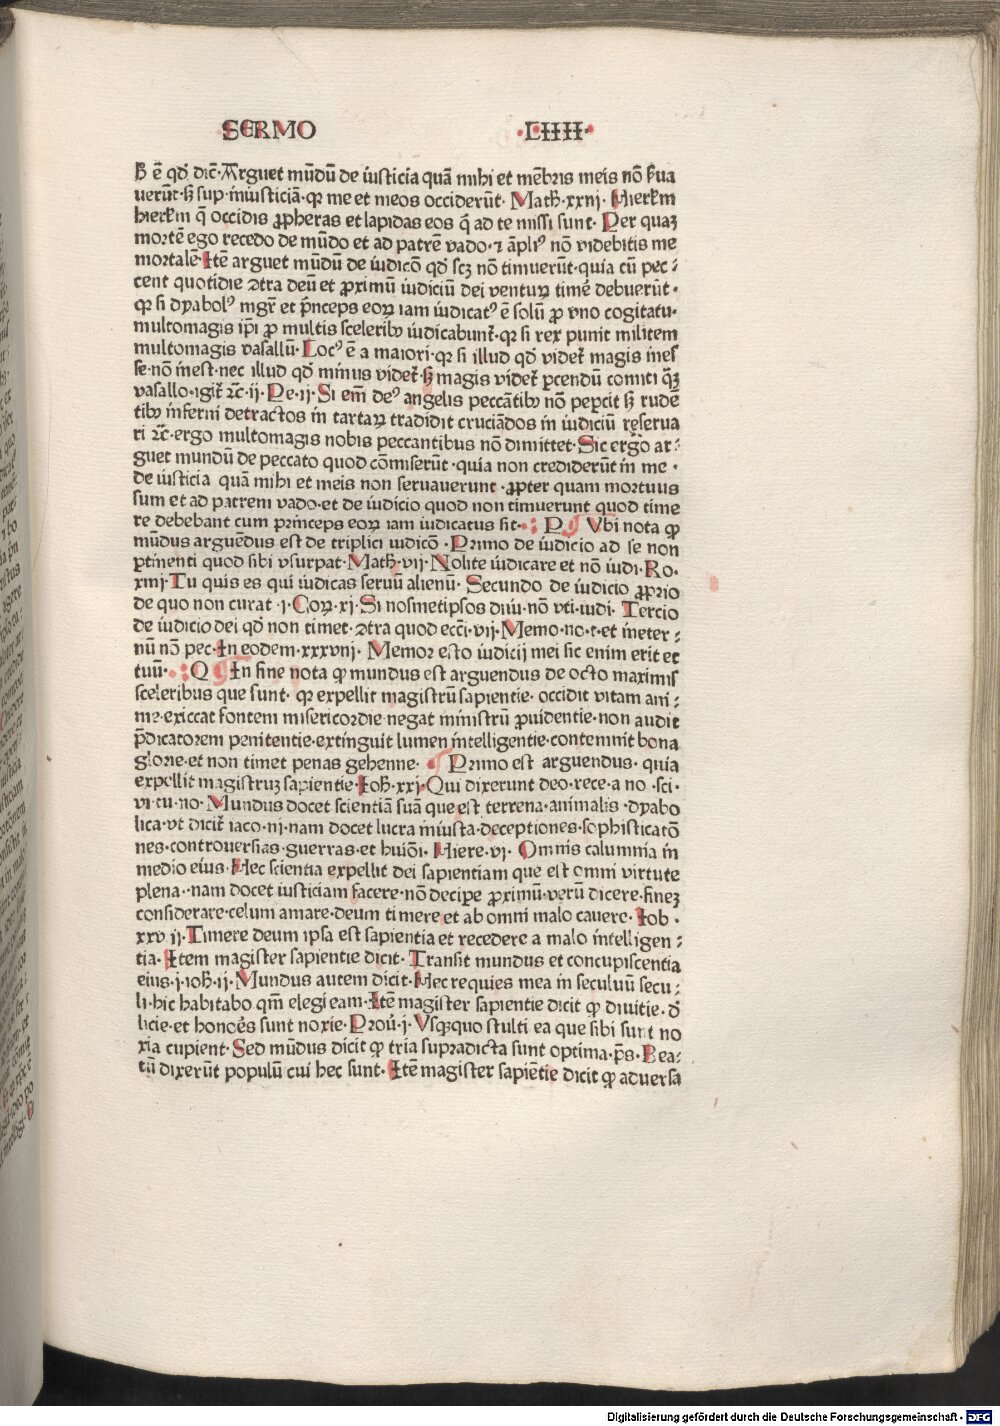 SERMO ·LIIII·
ẜ ē qđ dic̄·Arguet mūdū de iusticia quā mihi et mēbris meis nō ẜua
uerūt·sꝫ sup iniusticiā·qꝛ me et meos occiderūt· Math̄·xxiij· Hierłm
hierłm q̄ occidis ꝓpheras et lapidas eos q̄ ad te missi sunt· Per quaꝫ
mortē ego recedo de mūdo et ad patrē vado·⁊ āpliꝰ nō videbitis me
mortalē·Itē arguet mūdū de iudicō qđ scꝫ nō timuerūt·quia cū pec⸗
cent quotidie ꝯtra deū et ꝓximū iudiciū dei venturꝝ timē debuerūt·
qꝛ si dyabolꝰ mgr̄ et p̄nceps eoꝝ iam iudicatꝰ ē solū ꝓ vno cogitatu·
multomagis ip̄i ꝓ multis sceleribꝫ iudicabunt̄·qꝛ si rex punit militem
multomagis vasallū· Locꝰ ē a maiori·qꝛ si illud qđ videt̄ magis inēs
se·nō inest·nec illud qđ minus videt̄·sꝫ magis videt̄ ꝑcendū comiti q̄ꝫ
vasallo·igit̄ ⁊c̄·ij·Pe·ij·Si em̄ deꝰ angelis peccātibꝫ nō pepcit sꝫ rudē
tibꝫ inferni detractos in tartaꝝ tradidit cruciādos in iudiciū reserua
ri ⁊c̄·ergo multomagis nobis peccantibus nō dimittet·Sic ergo ar⸗
guet mundū de peccato quod cōmiserūt·quia non crediderūt in me·
de iusticia quā mihi et meis non seruauerunt·ꝓpter quam mortuus
sum et ad patrem vado·et de iudicio quod non timuerunt quod time
re debebant cum princeps eoꝝ iam iudicatus sit·: P ¶ Vbi nota ꝙ
mūdus arguēdus est de triplici iudicō·Primo de iudicio ad se non
ꝑtinenti quod sibi vsurpat·Math̄·vij·Nolite iudicare et nō iudi·Ro·
xiiij·Tu quis es qui iudicas seruū alienū· Secundo de iudicio ꝓprio
de quo non curat ·j·Coꝝ·xj·Si nosmetipsos diiu·nō vti·iudi· Tercio
de iudicio dei qđ non timet·ꝯtra quod ecci·vij·Memo·no·t·et ineter⸗
nū nō pec·In eodem·xxxviij· Memor esto iudicij mei sic enim erit et
tuū·: Q ¶ In fine nota ꝙ mundus est arguendus de octo maximis
sceleribus que sunt· qꝛ expellit magistrū sapientie·occidit vitam ani⸗
me·exiccat fontem misericordie·negat ministrū ꝓuidentie·non audit
p̄dicatorem penitentie·extinguit lumen intelligentie·contemnit bona
glorie·et non timet penas gehenne· ¶ Primo est arguendus·quia
expellit magistruꝫ sapientie·Ioh̄·xxj·Qui dixerunt deo·rece·a no·sci·
vi·tu·no·Mundus docet scientiā suā que est terrena·animalis·dyabo
lica·vt dicit̄ iaco·iij·nam docet lucra iniusta·deceptiones·sophisticatō
nes·controuersias·guerras·et huiōi·Hiere·vj· Omnis calumnia in
medio eius·Hec scientia expellit dei sapientiam que est omni virtute
plena·nam docet iusticiam facere·nō decipe ꝓximū·verū dicere·fineꝫ
considerare·celum amare·deum timere et ab omni malo cauere· Iob·
xxviij·Timere deum ipsa est sapientia et recedere a malo intelligen⸗
tia·Item magister sapientie dicit·Transit mundus et concupiscentia
eius·j·ioh̄·ij·Mundus autem dicit·Hec requies mea in seculuū secu⸗
li·hic habitabo qm̄ elegi eam·Itē magister sapientie dicit ꝙ diuitie·đ
licie·et honoēs sunt noxie·Prou̇·j·Vsqꝫquo stulti ea que sibi sunt no
xia cupient·Sed mūdus dicit ꝙ tria supradicta sunt optima·p̄s·Bea⸗
tū dixerūt populū cui hec sunt·Itē magister sapiētie dicit ꝙ aduersa
Digitalisierung gefördert durch die Deutsche Forschungsgemeinschaft - DFG